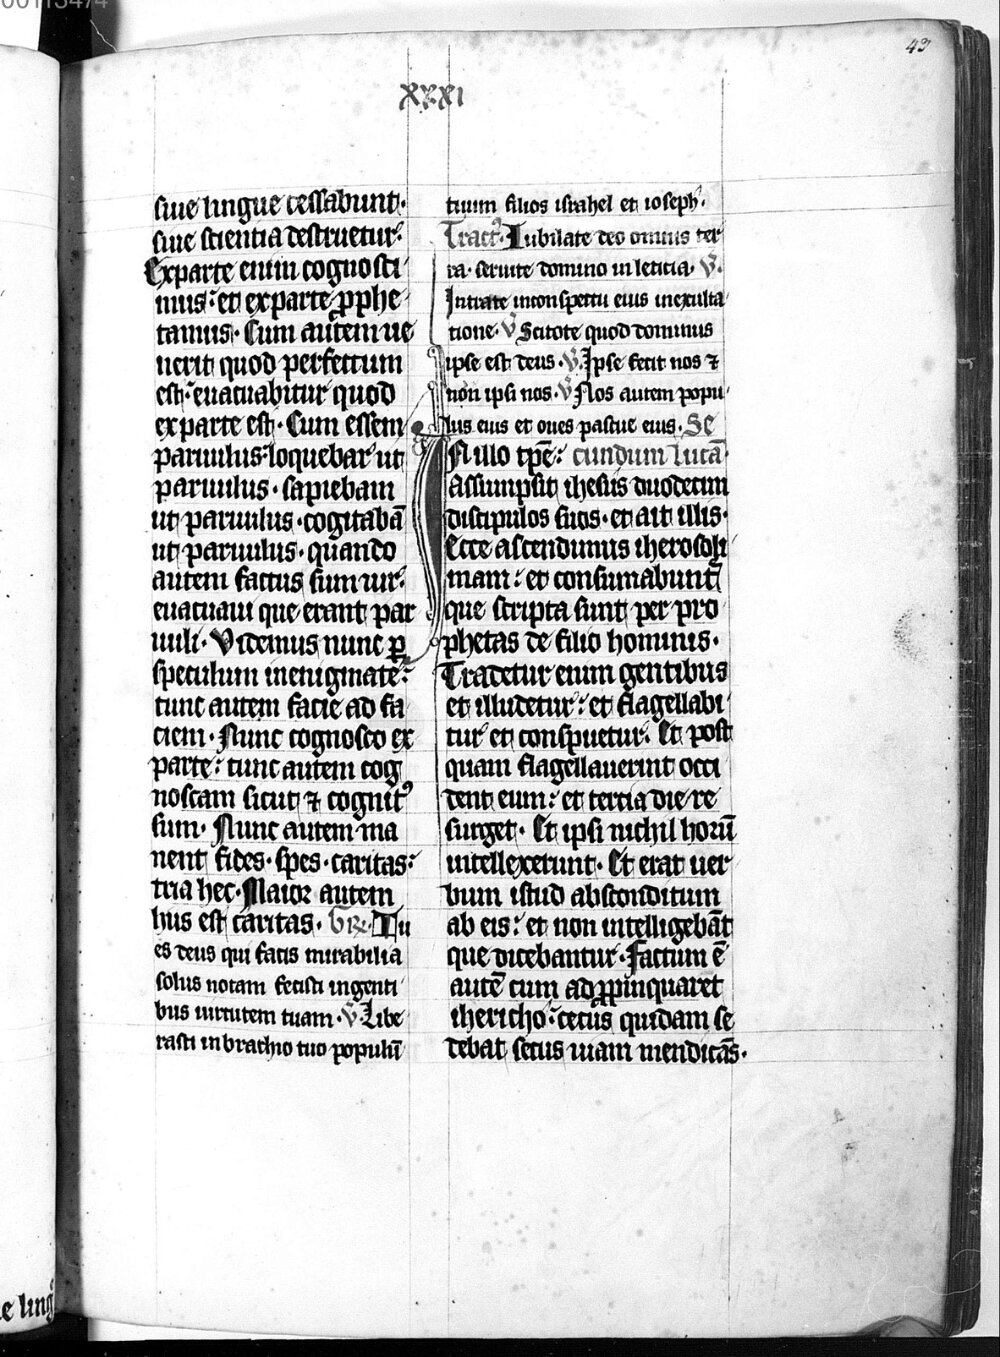 00113474
43
XXXI
siue lingue cessabunt.
siue scientia destruetur.
Ex parte enim cognosci
mus: et ex parte ꝓphe
tamus. Cum autem ue
nerit quod perfectum
est: euacuabitur quod
ex parte est. Cum essem
paruulus: loquebar ut
paruulus. sapiebam
ut paruulus. cogitabā
ut paruulus. quando
autem factus sum uir:
euacuaui que erant par
uuli. Videmus nunc ꝑ
speculum in enigmate:
tunc autem facie ad fa
ciem. Nunc cognosco ex
parte: tunc autem cog
noscam sicut ⁊ cognitꝰ
sum. Nunc autem ma
nent fides. spes. caritas:
tria hec. Maior autem
hus est caritas. Gr̄. Tu
es deus qui facis mirabilia
solus notam fecisti in genti
bus uirtutem tuam. ℣. Libe
rasti in brachio tuo populū
tuum filios israhel et ioseph.
Tractꝰ. Iubilate deo omnis ter
ra. seruite domino in leticia. ℣.
Intrate in conspectu eius in exulta
tione. ℣ Scitote quod dominus
ipse est deus. ℣. Ipse fecit nos ⁊
non ipsi nos. ℣ Nos autem popu
lus eius et oues pascue eius. Se
In illo tp̄e: cundum lucā.
Assumpsit ihesus duodecim
discipulos suos. et ait illis.
Ecce ascendimus iherosoli
mam: et consumabunt᷑
que scripta sunt per pro
phetas de filio hominis.
Tradetur enim gentibus
et illudetur: et flagellabi
tur et conspuetur. Et post
quam flagellauerint occi
dent eum: et tercia die re
surget. Et ipsi nichil horū
intellexerunt. Et erat uer
bum istud absconditum
ab eis: et non intelligebāt
que dicebantur. Factum ē
autē cum adꝓpinquaret
ihericho: cecus quidam se
debat secus uiam mendicās.
e ling